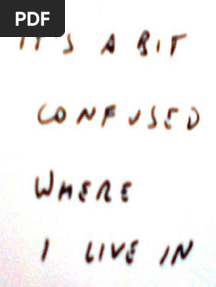 PDF
IT'S A BIT
CONFUSED
WHERE
I LIVE IN